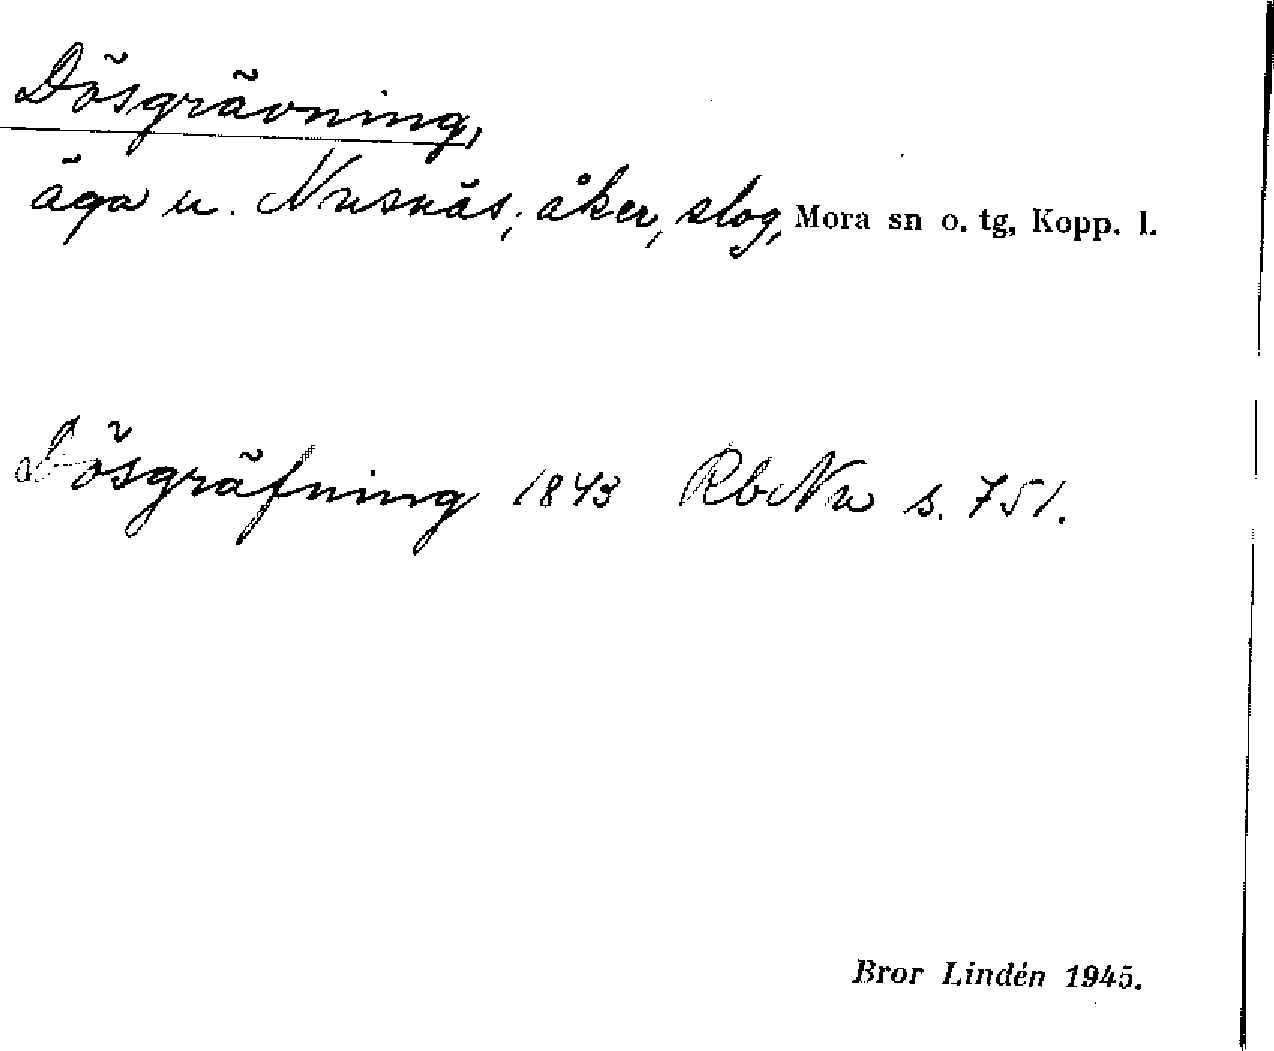 Dösgrävning,
äga u. Nusnäs; åker, slog, Mora sn o. tg, Kopp. l.
Dösgräfning 1843 RbNu s. 751.
Bror Lindén 1945.